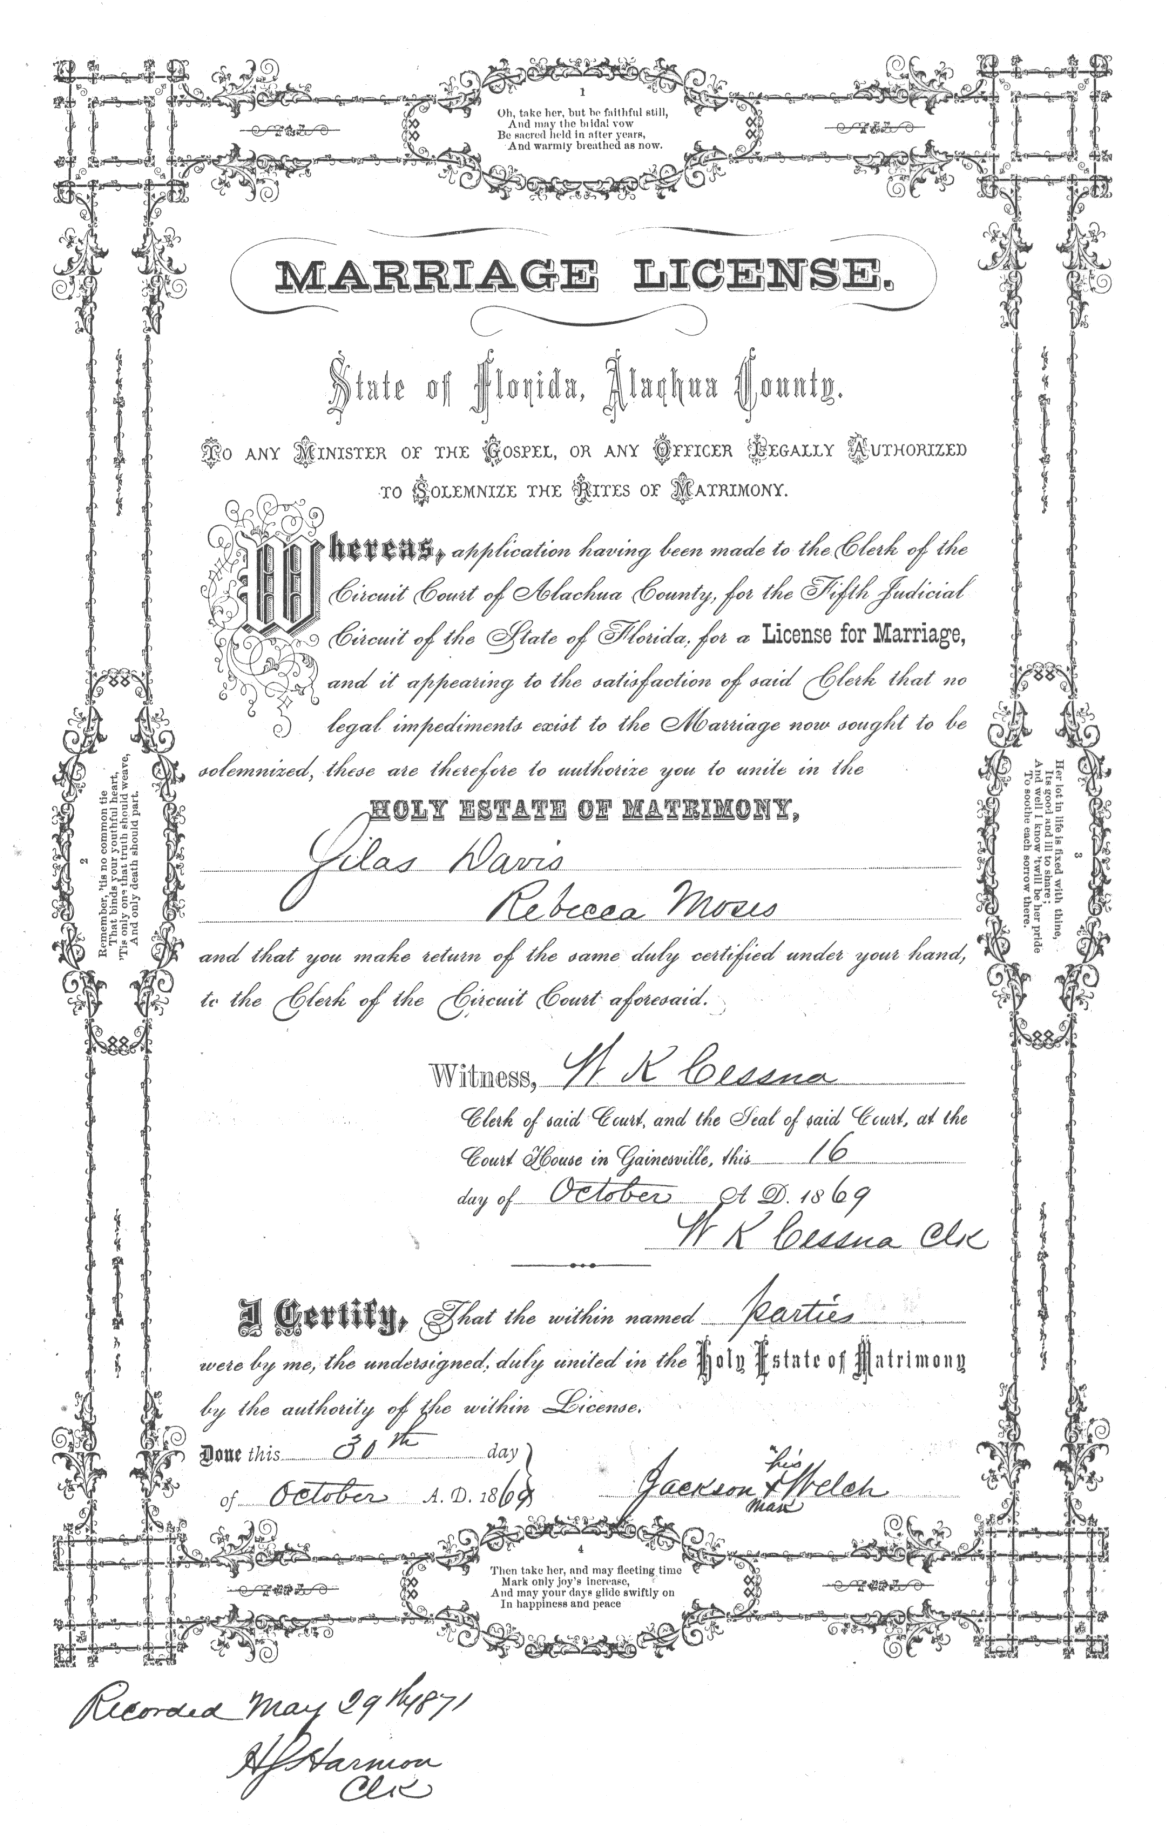 1
Oh, take her, but be faithful still,
And may the bridal vow
Be sacred held in after years,
And warmly breathed as now.
MARRIAGE LICENSE.
State of Florida, Alachua County.
To any Minister of the Gospel, or any Officer Legally Authorized
to Solemnize the Rites of Matrimony.
Whereas, application having been made to the Clerk of the
Circuit Court of Alachua County, for the Fifth Judicial
Circuit of the State of Florida, for a License for Marriage,
and it appearing to the satisfaction of said Clerk that no
legal impediments exist to the Marriage now sought to be
solemnized, these are therefore to authorize you to unite in the
HOLY ESTATE OF MATRIMONY,
Silas Davis
Rebecca Moses
and that you make return of the same duly certified under your hand,
to the Clerk of the Circuit Court aforesaid.
2
Remember, 'tis no common tie
That binds your youthful heart,
'Tis only one that truth should weave,
And only death should part.
3
Her lot in life is fixed with thine,
Its good and ill to share;
And well I know 'twill be her pride
To soothe each sorrow there.
Witness, W K Cessna
Clerk of said Court, and the Seal of said Court, at the
Court House in Gainesville, this 16
day of October A D. 1869
W K Cessna Clk
I Certify, That the within named parties
were by me, the undersigned, duly united in the Holy Estate of Matrimony
by the authority of the within License.
Done this 30th day
of October A. D. 1869
Jackson his x mark Welch
4
Then take her, and may fleeting time
Mark only joy's increase,
And may your days glide swiftly on
In happiness and peace
Recorded May 29th 1871
HJ Harmon
Clk